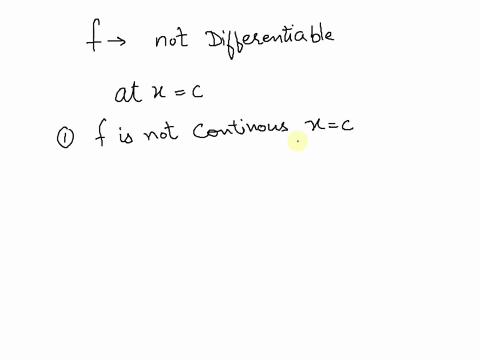 f → not Differentiable
at x = c
① f is not Continous x = c